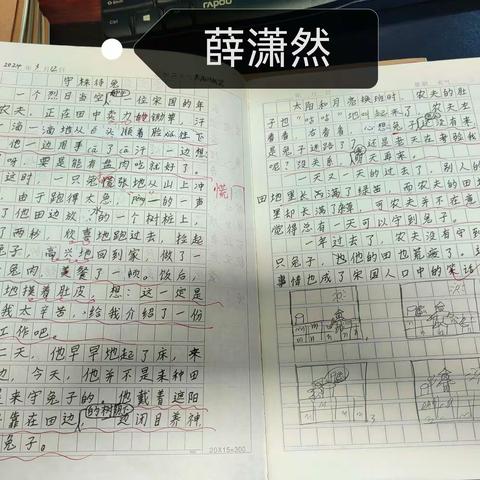 rapoo
薛潇然
2024年3月12日
守株待兔
一个烈日当空，一位宋国的年
农夫，正在田中卖力的锄草，汗
一滴一滴地从额头顺着脸颊往下
他一边用手擦了擦汗，一边想：
呀，要是能有盘肉吃就好了。
这时，一只慌张地从山上冲
慌
由于跑得太急，的一声
了他田边放的一个树桩上，
了两秒，欣喜地跑过去，捡起
兔子，高兴地回到家，做了一
兔肉，美餐了一顿。饭后，
地摸着肚皮，想：这一定是
我太辛苦，给我介绍了一份
工作吧。
二天，他早早地起了床，来
边，今天，他并不是来种田
是来守兔子的。他戴着遮阳
靠在田边的树桩，边闭目养神
兔子。
20X15=300
太阳和月亮换班时，农夫的肚
子也"咕咕"叫了起来了，农夫左
看看，右看看，心想兔子还没有来
是兔子迷路了？还是老天在考验我
呢？没关系，明天再来。
一天又一天的过去了，别人的
田地里长满了绿苗，而农夫的田
里却长满了草，可农夫并不在意
觉得总有一天可以守到兔子。
一年过去了，农夫没有守到
只兔子，他的田也荒废了。
事情也成了宋国人口中的笑话